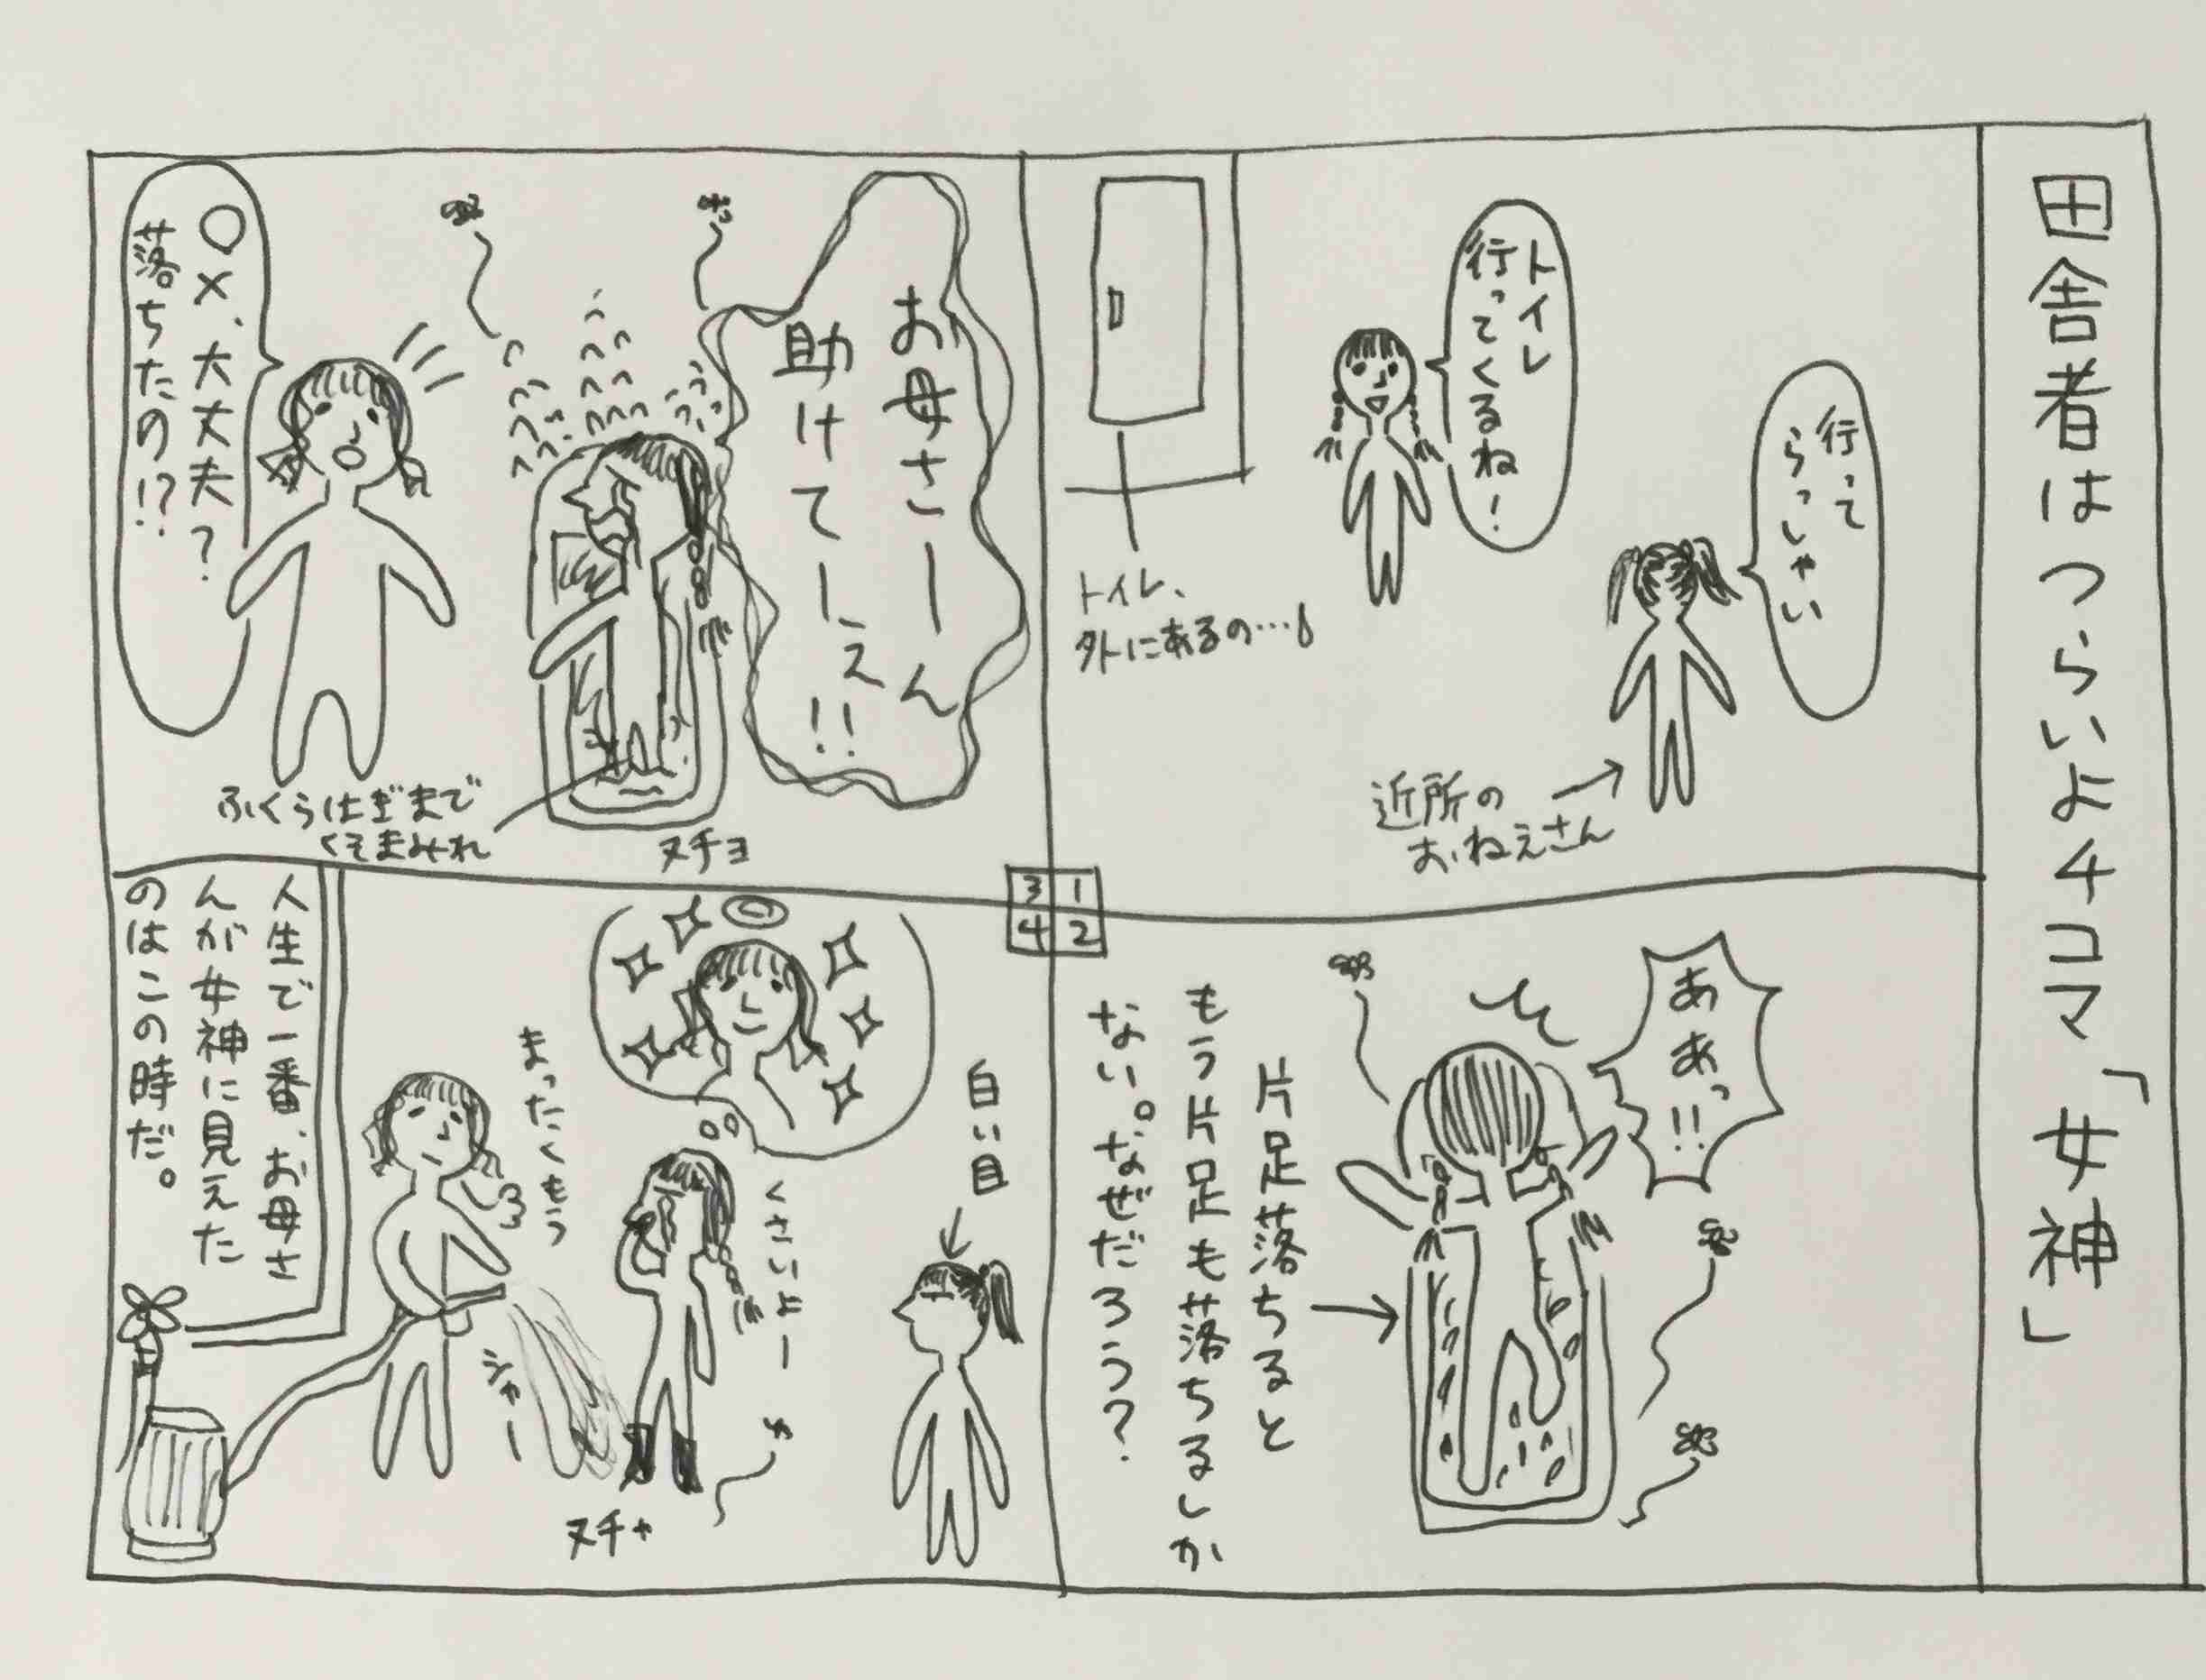 田舎者はつらいよ4コマ「女神」
トイレ
行ってくるね!
行って
らっしゃい
トイレ、
外にあるの…
近所の
おねえさん
ああっ!!
片足落ちると
もう片足も落ちるしか
ない。なぜだろう?
お母さーん
助けてーえ!!
○×、大丈夫?
落ちたの!?
ふくらはぎまで
くそまみれ
ヌチョ
3 1
4 2
白い目
くさいよー
まったくもう
シャー
ヌチャ
人生で一番、お母さ
んが女神に見えた
のはこの時だ。